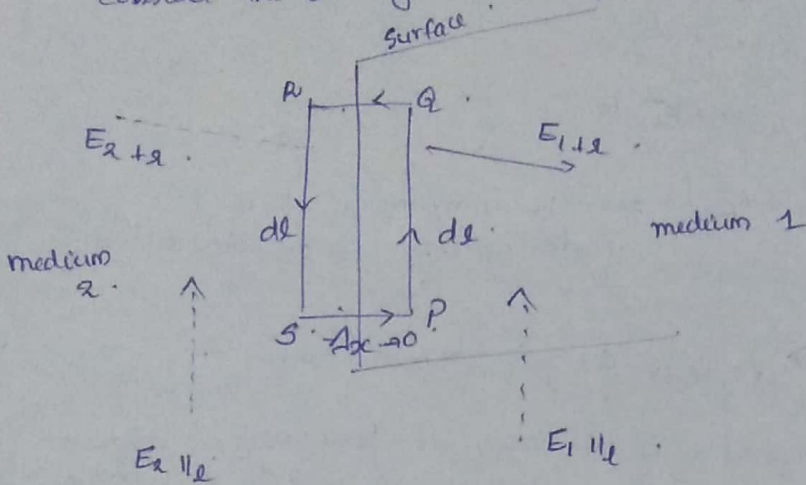 surface
R Q
E₂ ⊥ l
E₁ ⊥ l
dl dl
medium 1
medium
2
S Δx→0 P
E₂ ∥ l
E₁ ∥ l